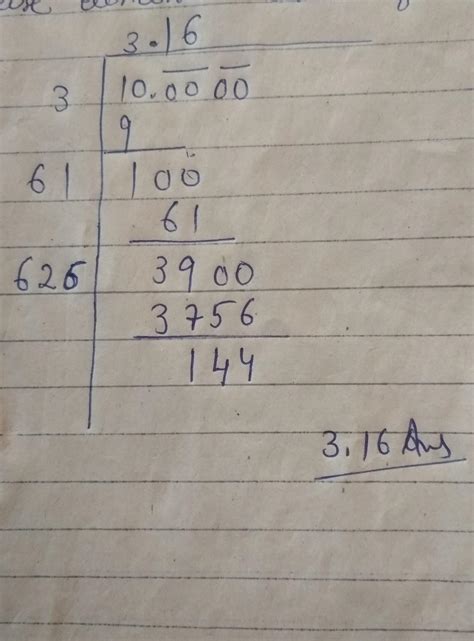 3.16
3 10.00 00
9
61 100
61
626 3900
3756
144
3.16 Ans